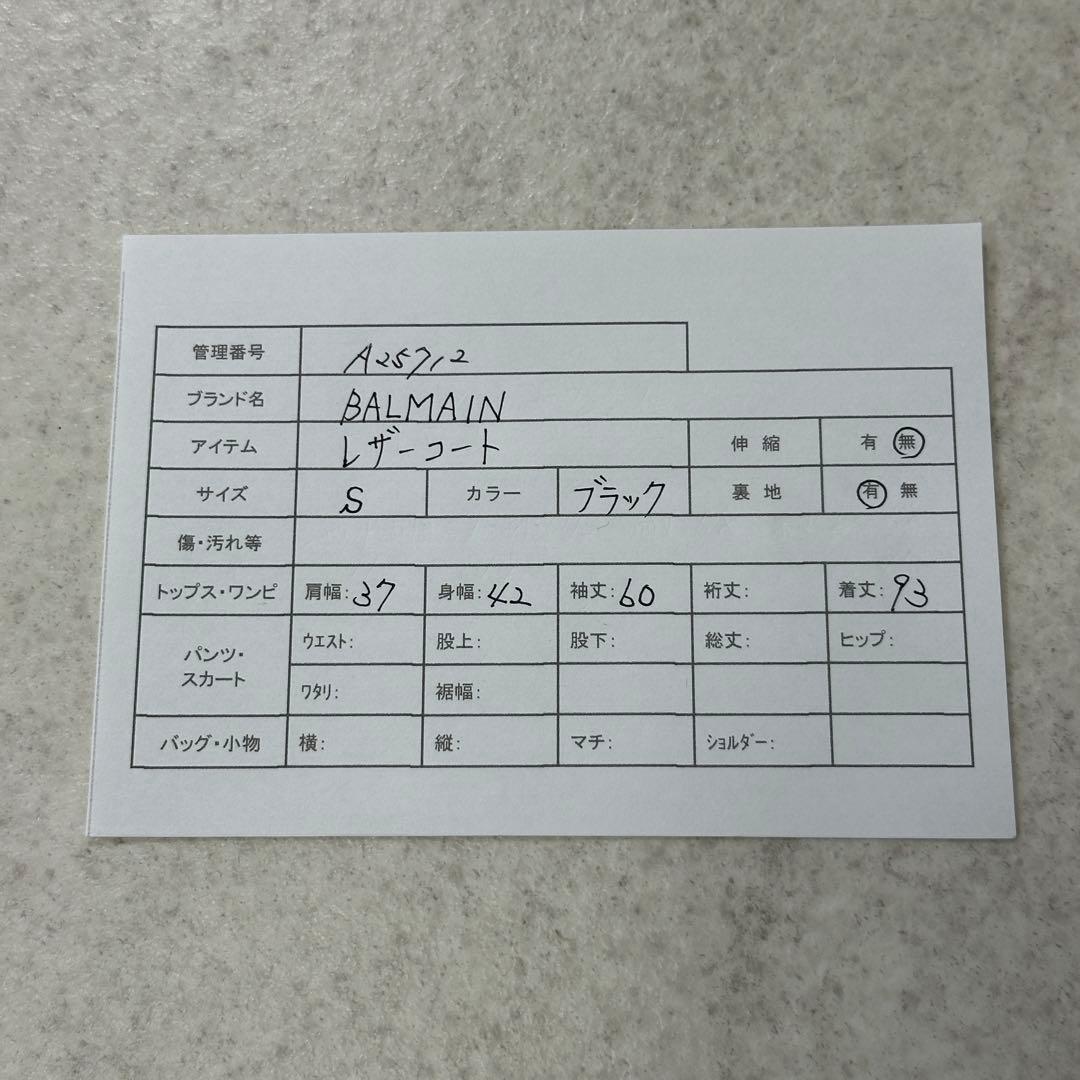 管理番号 A25712
ブランド名 BALMAIN
アイテム レザーコート 伸縮 有 無
サイズ S カラー ブラック 裏地 有 無
傷・汚れ等
トップス・ワンピ 肩幅:37 身幅:42 袖丈:60 裄丈: 着丈:93
パンツ・スカート ウエスト: 股上: 股下: 総丈: ヒップ:
ワタリ: 裾幅:
バッグ・小物 横: 縦: マチ: ショルダー: